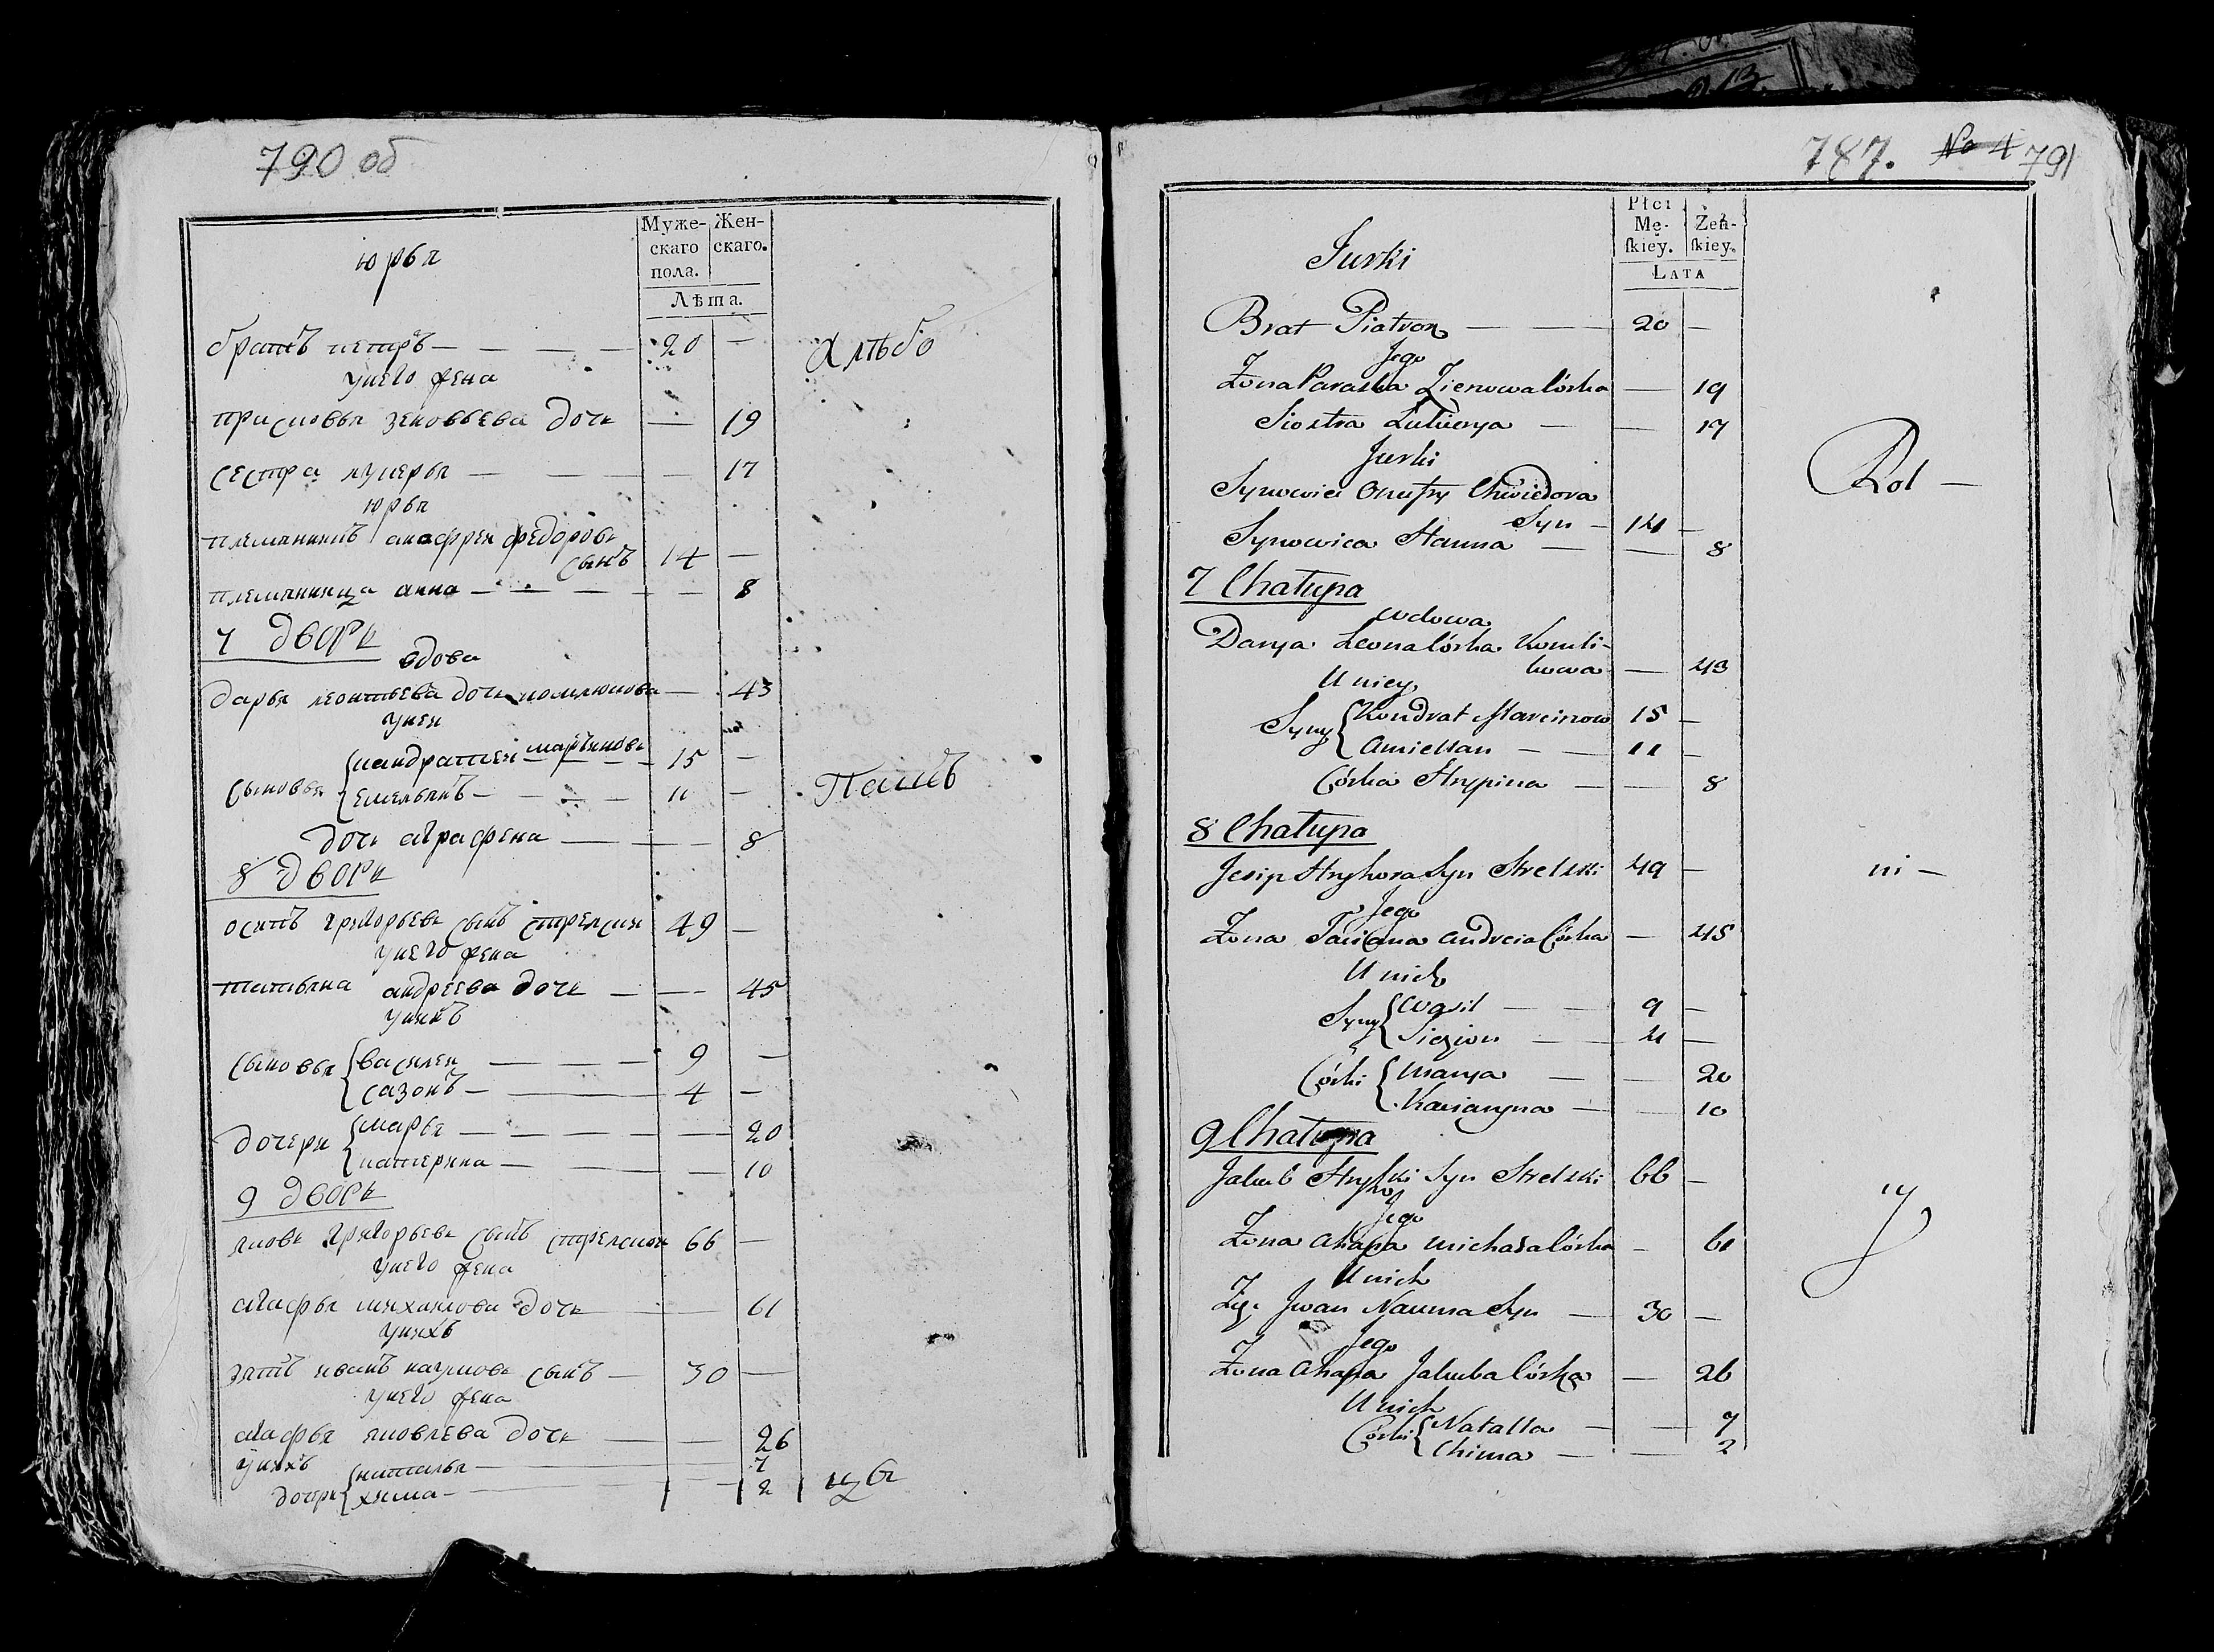 790 об
Муже-
скаго
пола.
Жен-
скаго.
Лѣта.
юрья
братъ петръ — 20 —
хлѣбо
унего жена
присковья зеновьева дочь — 19
сестра лукерья — 17
юрья
племянникъ анофрей федоровъ
сынъ 14 —
племянница анна — 8
7 дворъ
вдова
дарья леонтьева дочь — 43
унея
сыновья кандратей мартиновъ — 15 —
емельянъ — 11 —
пашъ
дочь аграфена — 8
8 дворъ
осипъ григорьевъ сынъ стрельски 49 —
унего жена
татьяна андреева дочь — 45
унихъ
сыновья василей — 9 —
сазонъ — 4 —
дочери марья — 20
катерина — 10
9 дворъ
яковъ григорьевъ сынъ стрельски 66 —
унего жена
агафья михаилова дочь — 61
унихъ
зять иванъ наумовъ сынъ — 30 —
унего жена
агафья яковлева дочь — 26
унихъ наталья — 7
дочери хима — 2
цы
787. No 4 791
Płci
Mę-
ſkiey.
Żeń-
ſkiey.
LATA
Jurki
Brat Piatron — 20 —
Jego
Żona Paraska Zienowa Córka — 19
Siostra Lukierya — 17
Jurki
Synowiec Onufry Chwiedora
Syn — 14 —
Rol —
Synowica Hanna — 8
7 Chałupa
wdowa
Darya Leona Córka Komli-
kowa — 43
U niey
Syny Kondrat Marcinow 15 —
Amielian — 11 —
Córka Hrypina — 8
8 Chałupa
Jesip Hryhora Syn Strelski 49 —
ni —
Jego
Żona Taciana Andreia Córka — 45
U nich
Syny Wasil — 9 —
Siezion — 4 —
Córki Marya — 20
Kaciaryna — 10
9 Chałupa
Jakub Hryhor Syn Strelski 66 —
y
Jego
Żona Ahapa Michała Córka — 61
U nich
Zięć Jwan Nauma Syn — 30 —
Jego
Żona Ahapa Jakuba Córka — 26
U nich
Córki Natalla — 7
Chima — 2